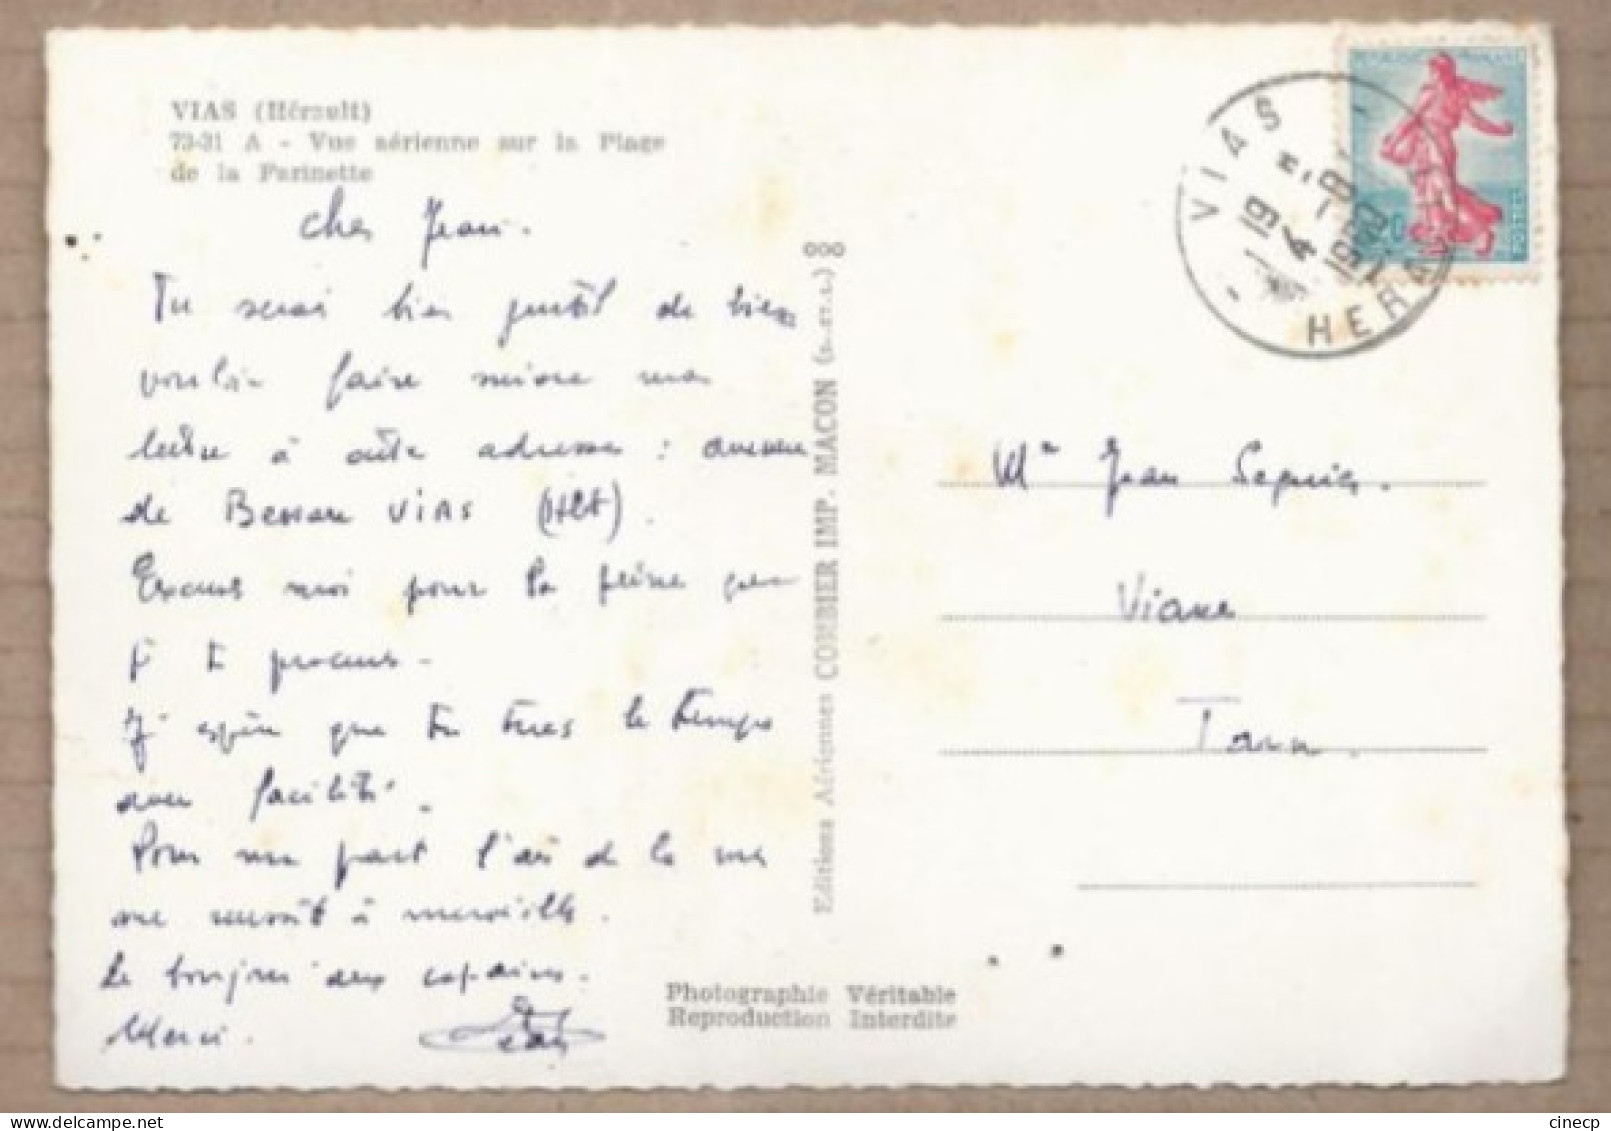 VIAS (Hérault)
73-31 A - Vue aérienne sur la Plage
de la Farinette
Cher Jean.
Tu serais bien gentil de bien
vouloir faire suivre mon
lettre à cette adresse : avenue
de Bessan VIAS (Hlt).
Excuse moi pour la peine que
je te procure -
J'espère que tu tues le temps
avec facilité.
Pour ma part l'air de la mer
me réussit à merveille.
Le bonjour aux copains.
Merci.
Editions Aériennes COMBIER IMP. MACON (S.-et-L.)
Photographie Véritable
Reproduction Interdite
VIAS
19 - 8
4
1960
HERAULT
REPUBLIQUE FRANÇAISE
0,20
POSTES
Mr Jean Seguier.
Viane
Tarn.
cinecp